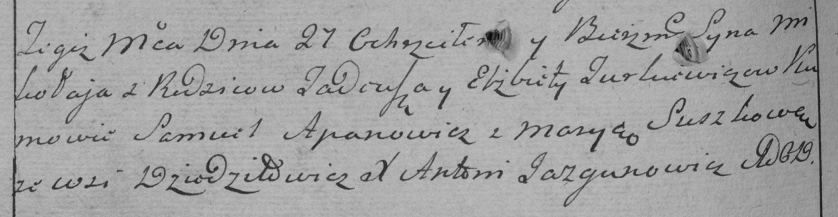 Tegiż Mca Dnia 27 Ochrzciłem y Bierzm. Syna Mi
kołaja z Rodzicow Tadeusza y Elżbiety Jurkiewiczow Ku
mowie Samuel Apanowicz z Maryą Suszkową
ze wsi Dziedziłowicz X Antoni Jazgunowicz